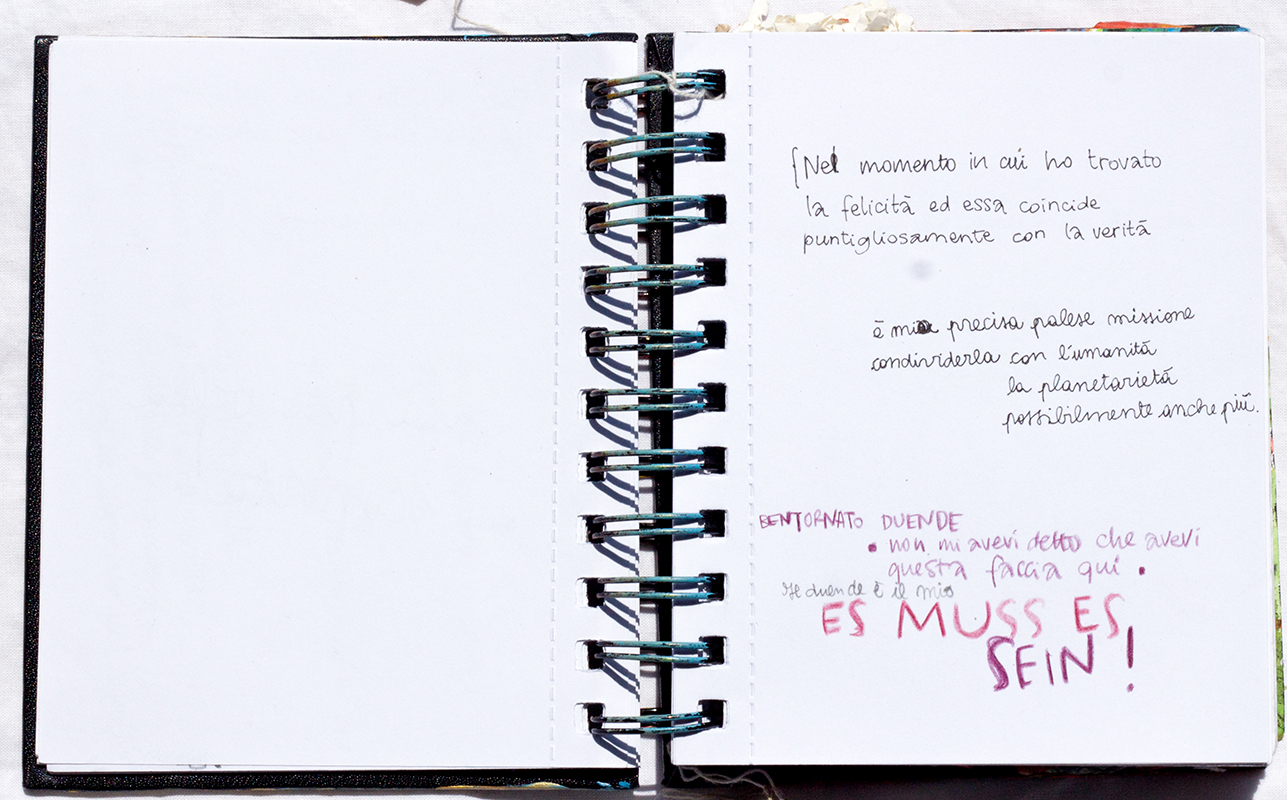 {Nel momento in cui ho trovato
la felicità ed essa coincide
puntigliosamente con la verità
è mia precisa palese missione
condividerla con l'umanità
la planetarietà
possibilmente anche più.
BENTORNATO DUENDE
• non mi avevi detto che avevi
questa faccia qui •
Il duende è il mio
ES MUSS ES
SEIN!